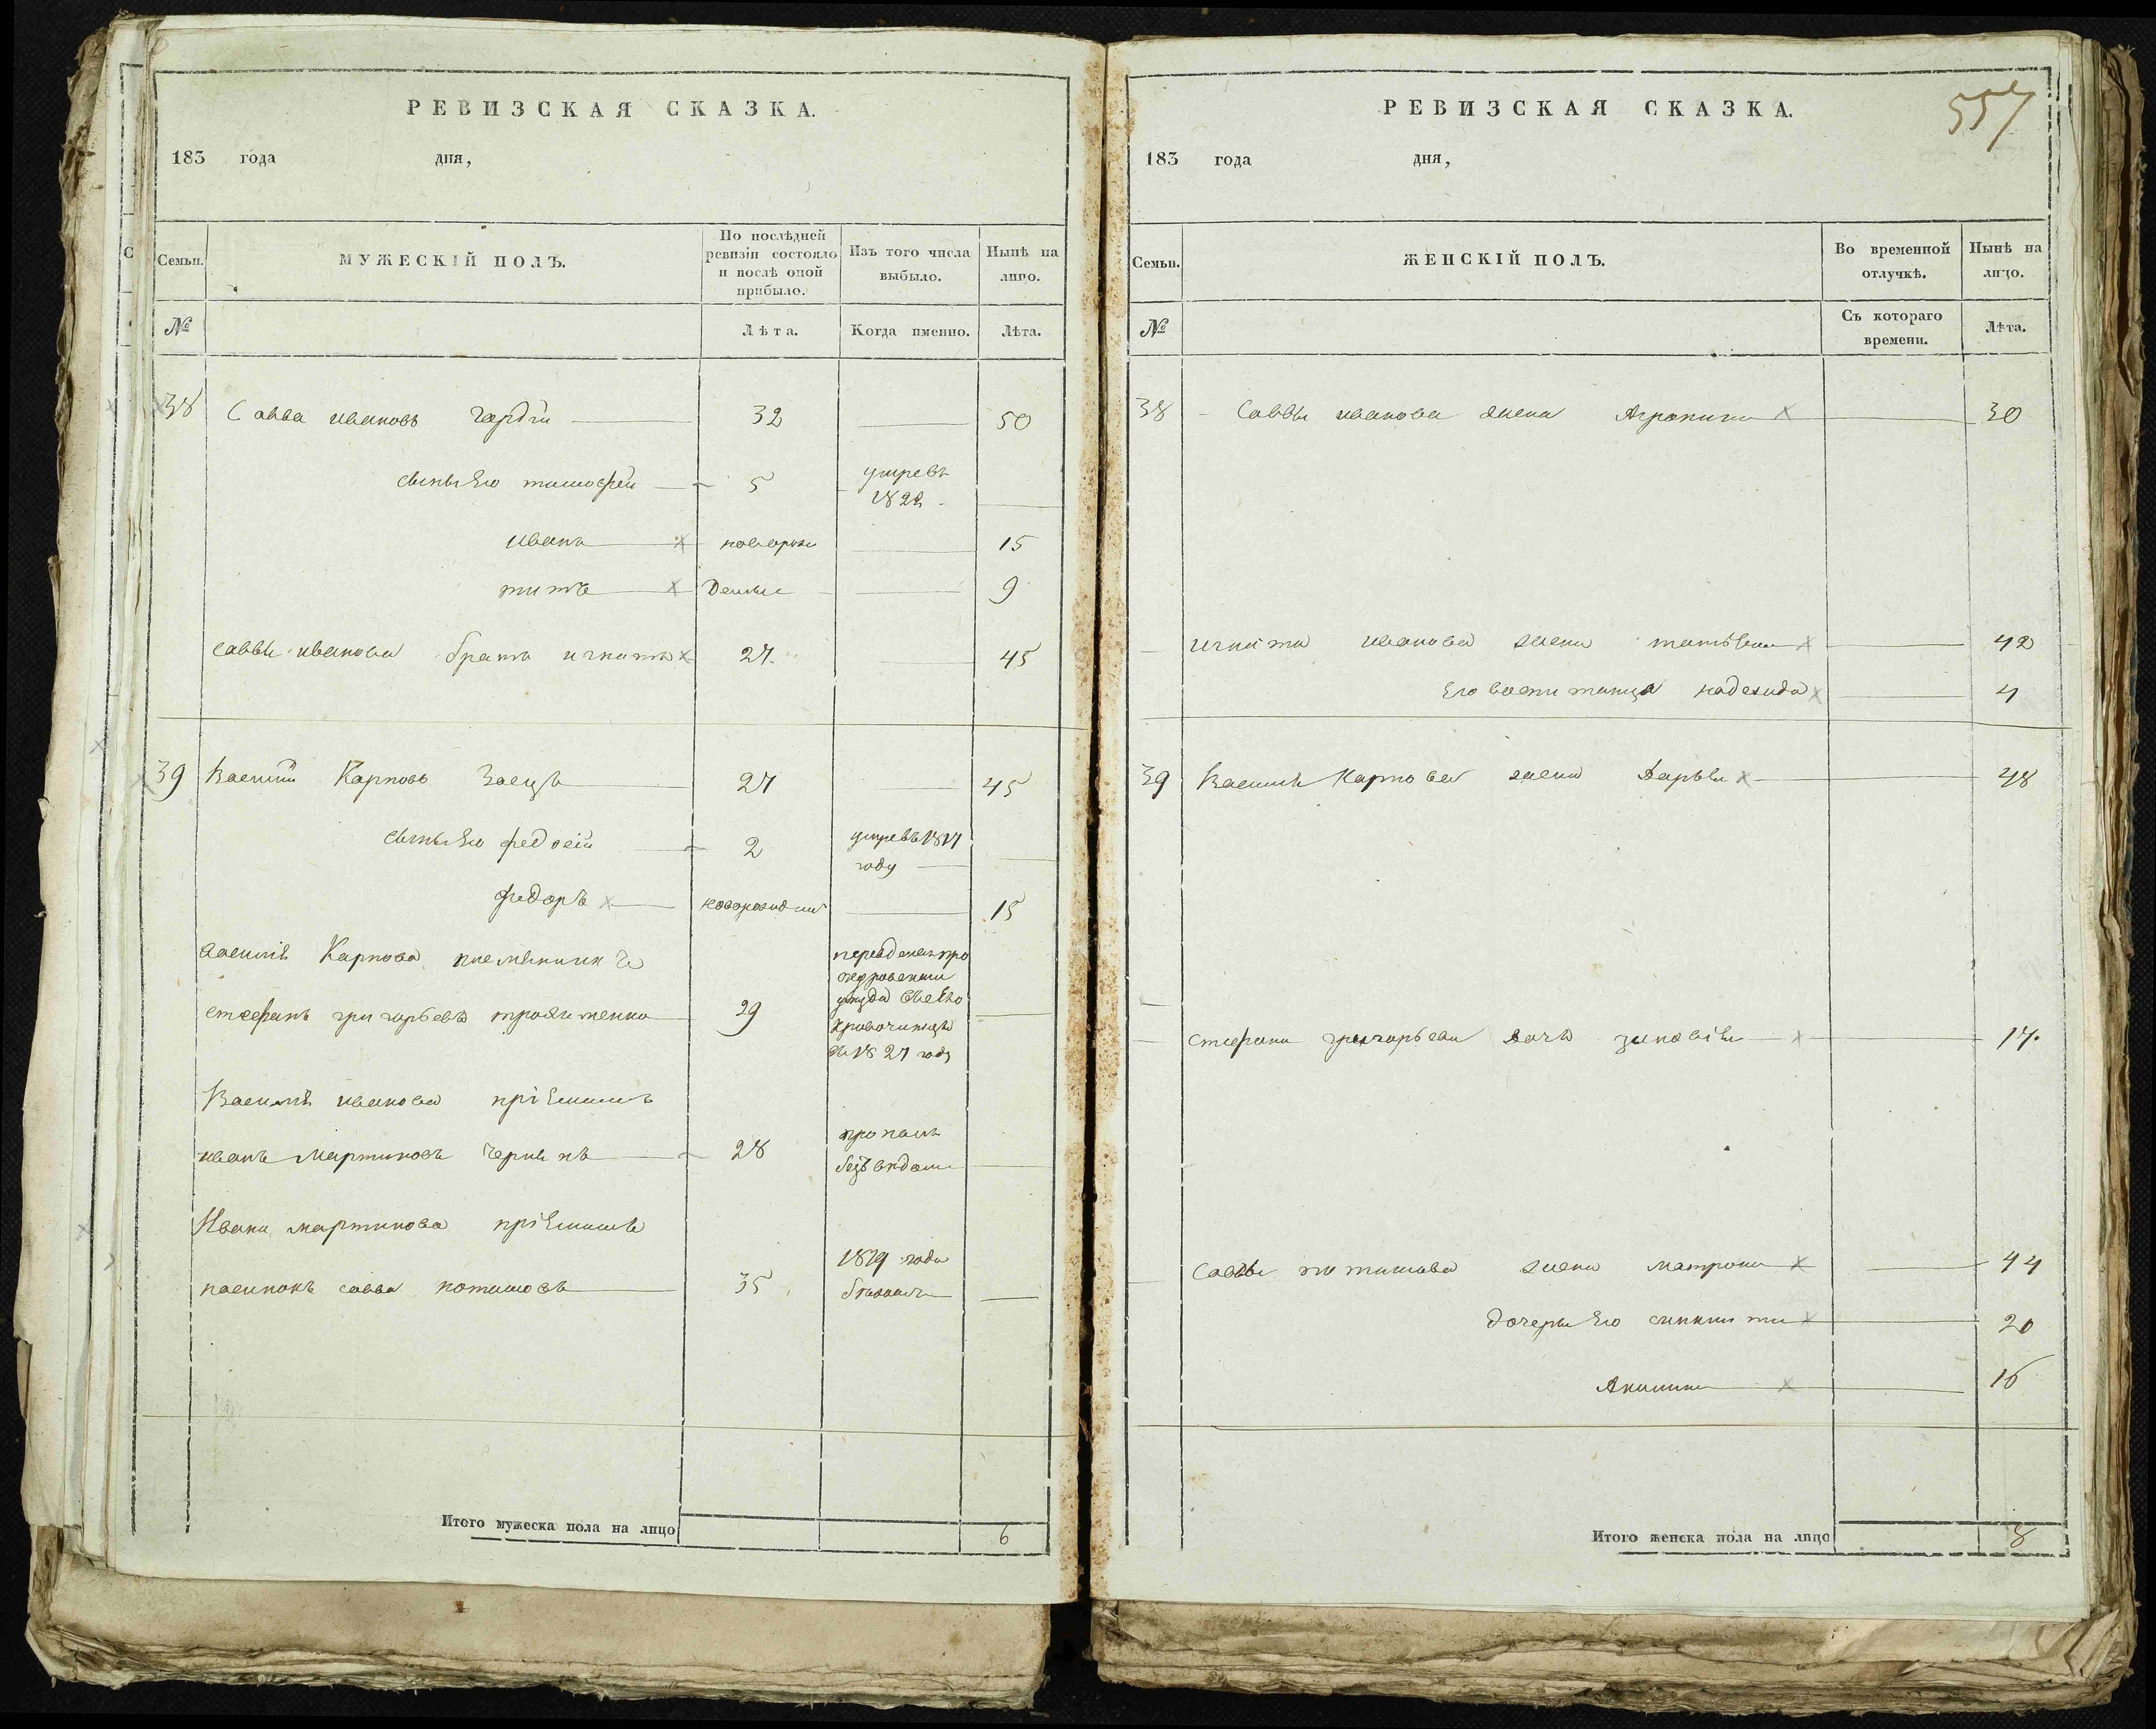 РЕВИЗСКАЯ СКАЗКА.
183 года дня,
Семьи. МУЖЕСКІЙ ПОЛЪ. По послѣдней ревизіи состояло и послѣ оной прибыло. Изъ того числа выбыло. Нынѣ на лицо.
№ Лѣта. Когда именно. Лѣта.
38 Савва ивановъ 32 50
сынъ Его тимофей 5 умре въ 1822
иванъ новорож 15
титъ 9
саввы иванова братъ игнатъ 27 45
39 Василій Карповъ Заецъ 27 45
сынъ Его федосій 2 умре въ 1817 году
федоръ новорожден 15
василія Карпова племянникъ
стефанъ григорьевъ 29 уезда 1827 году
Василія иванова пріемышъ
иванъ Мартиновъ 28 пропалъ
Ивана мартинова пріемышъ
пасинокъ савва 35 1819 года
Итого мужеска пола на лицо 6
РЕВИЗСКАЯ СКАЗКА. 557
183 года дня,
Семьи. ЖЕНСКІЙ ПОЛЪ. Во временной отлучкѣ. Нынѣ на лицо.
№ Съ котораго времени. Лѣта.
38 Саввы иванова жена 30
игната иванова жена татьяна 42
Его надежда 4
39 Василія Карпова жена Дарья 48
стефана григорьева дочь зиновія 17.
саввы жена матрона 44
дочеры Его 20
Акилина 16
Итого женска пола на лицо 8